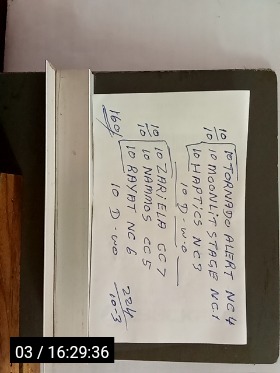 10 10 TORNADO ALERT NC4
10 10 MOONLIT STAGE NC.5
10 HAPTICS NC3
10 D-W.O
10 10 ZARIELA CC7
10 10 NAMMOS CC5
10 RAYAT NC6
10 D-WO
160/
224
10-3
03 / 16:29:36